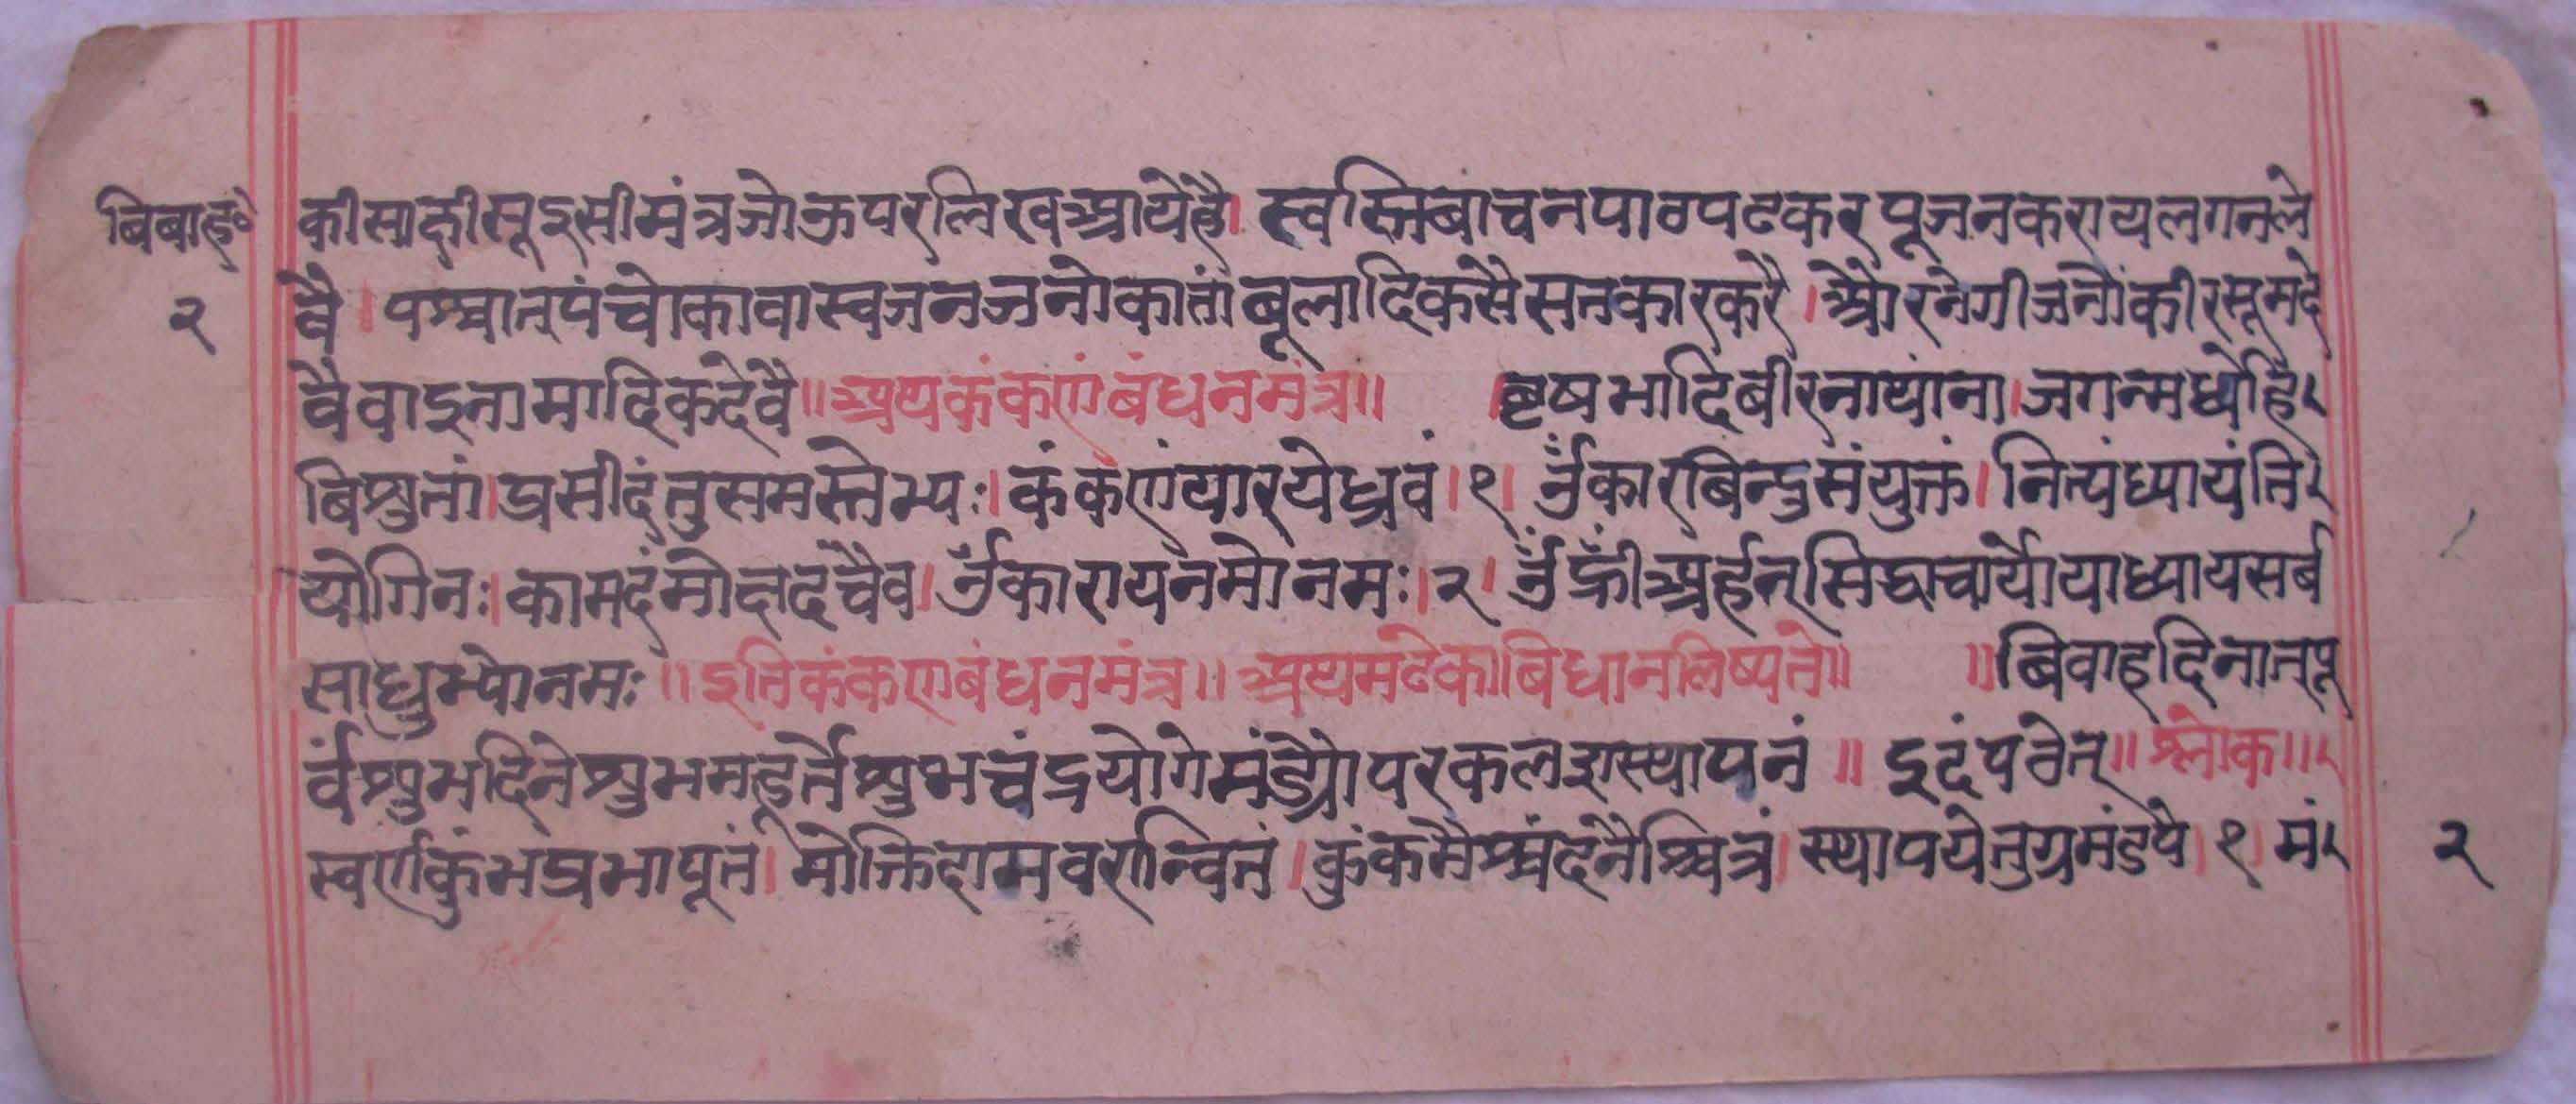 बिबाह॰ की साक्षी सू इसी मंत्र जो ऊपर लिख आये है। स्वस्तिबांचन पाठ पढकर पूजन कराय लगन ले
२ वै। पश्चात् पंचो का वा स्वजन जनो का तांबूलादिक सै सतकार करै। और नेगी जनौं की रसूम दे
वै वा इनामादिक देवै॥ अथ कंकण बंधन मंत्र॥ ॥बृषभादि बीरनाथांना। जगन्मध्येहि
बिश्रुतां। प्रसीदंतु समस्तेभ्यः। कंकणं धारये ध्रुवं। १। ॐकार बिन्दु संयुक्तं। नित्यं ध्यायंति
योगिनः। कामदं मोक्षदं चैव। ॐकाराय नमो नमः। २। ॐ ह्रीं अर्हत् सिद्धाचार्योपाध्याय सर्ब
साधुभ्यो नमः॥ इति कंकण बंधन मंत्र॥ अथ मढे का बिधान लिष्यते॥ ॥बिवाह दिनात् पू
र्वं शुभ दिने शुभ महूर्ते शुभ चंद्रयोगे कलश स्थापनं॥ इदं पठेत्॥ श्लोक॥
स्वर्ण कुंभं प्रभापूतं। कुंकमैश्चंदनैश्चित्रं। स्थापयेत् मंडपे। १। मं २